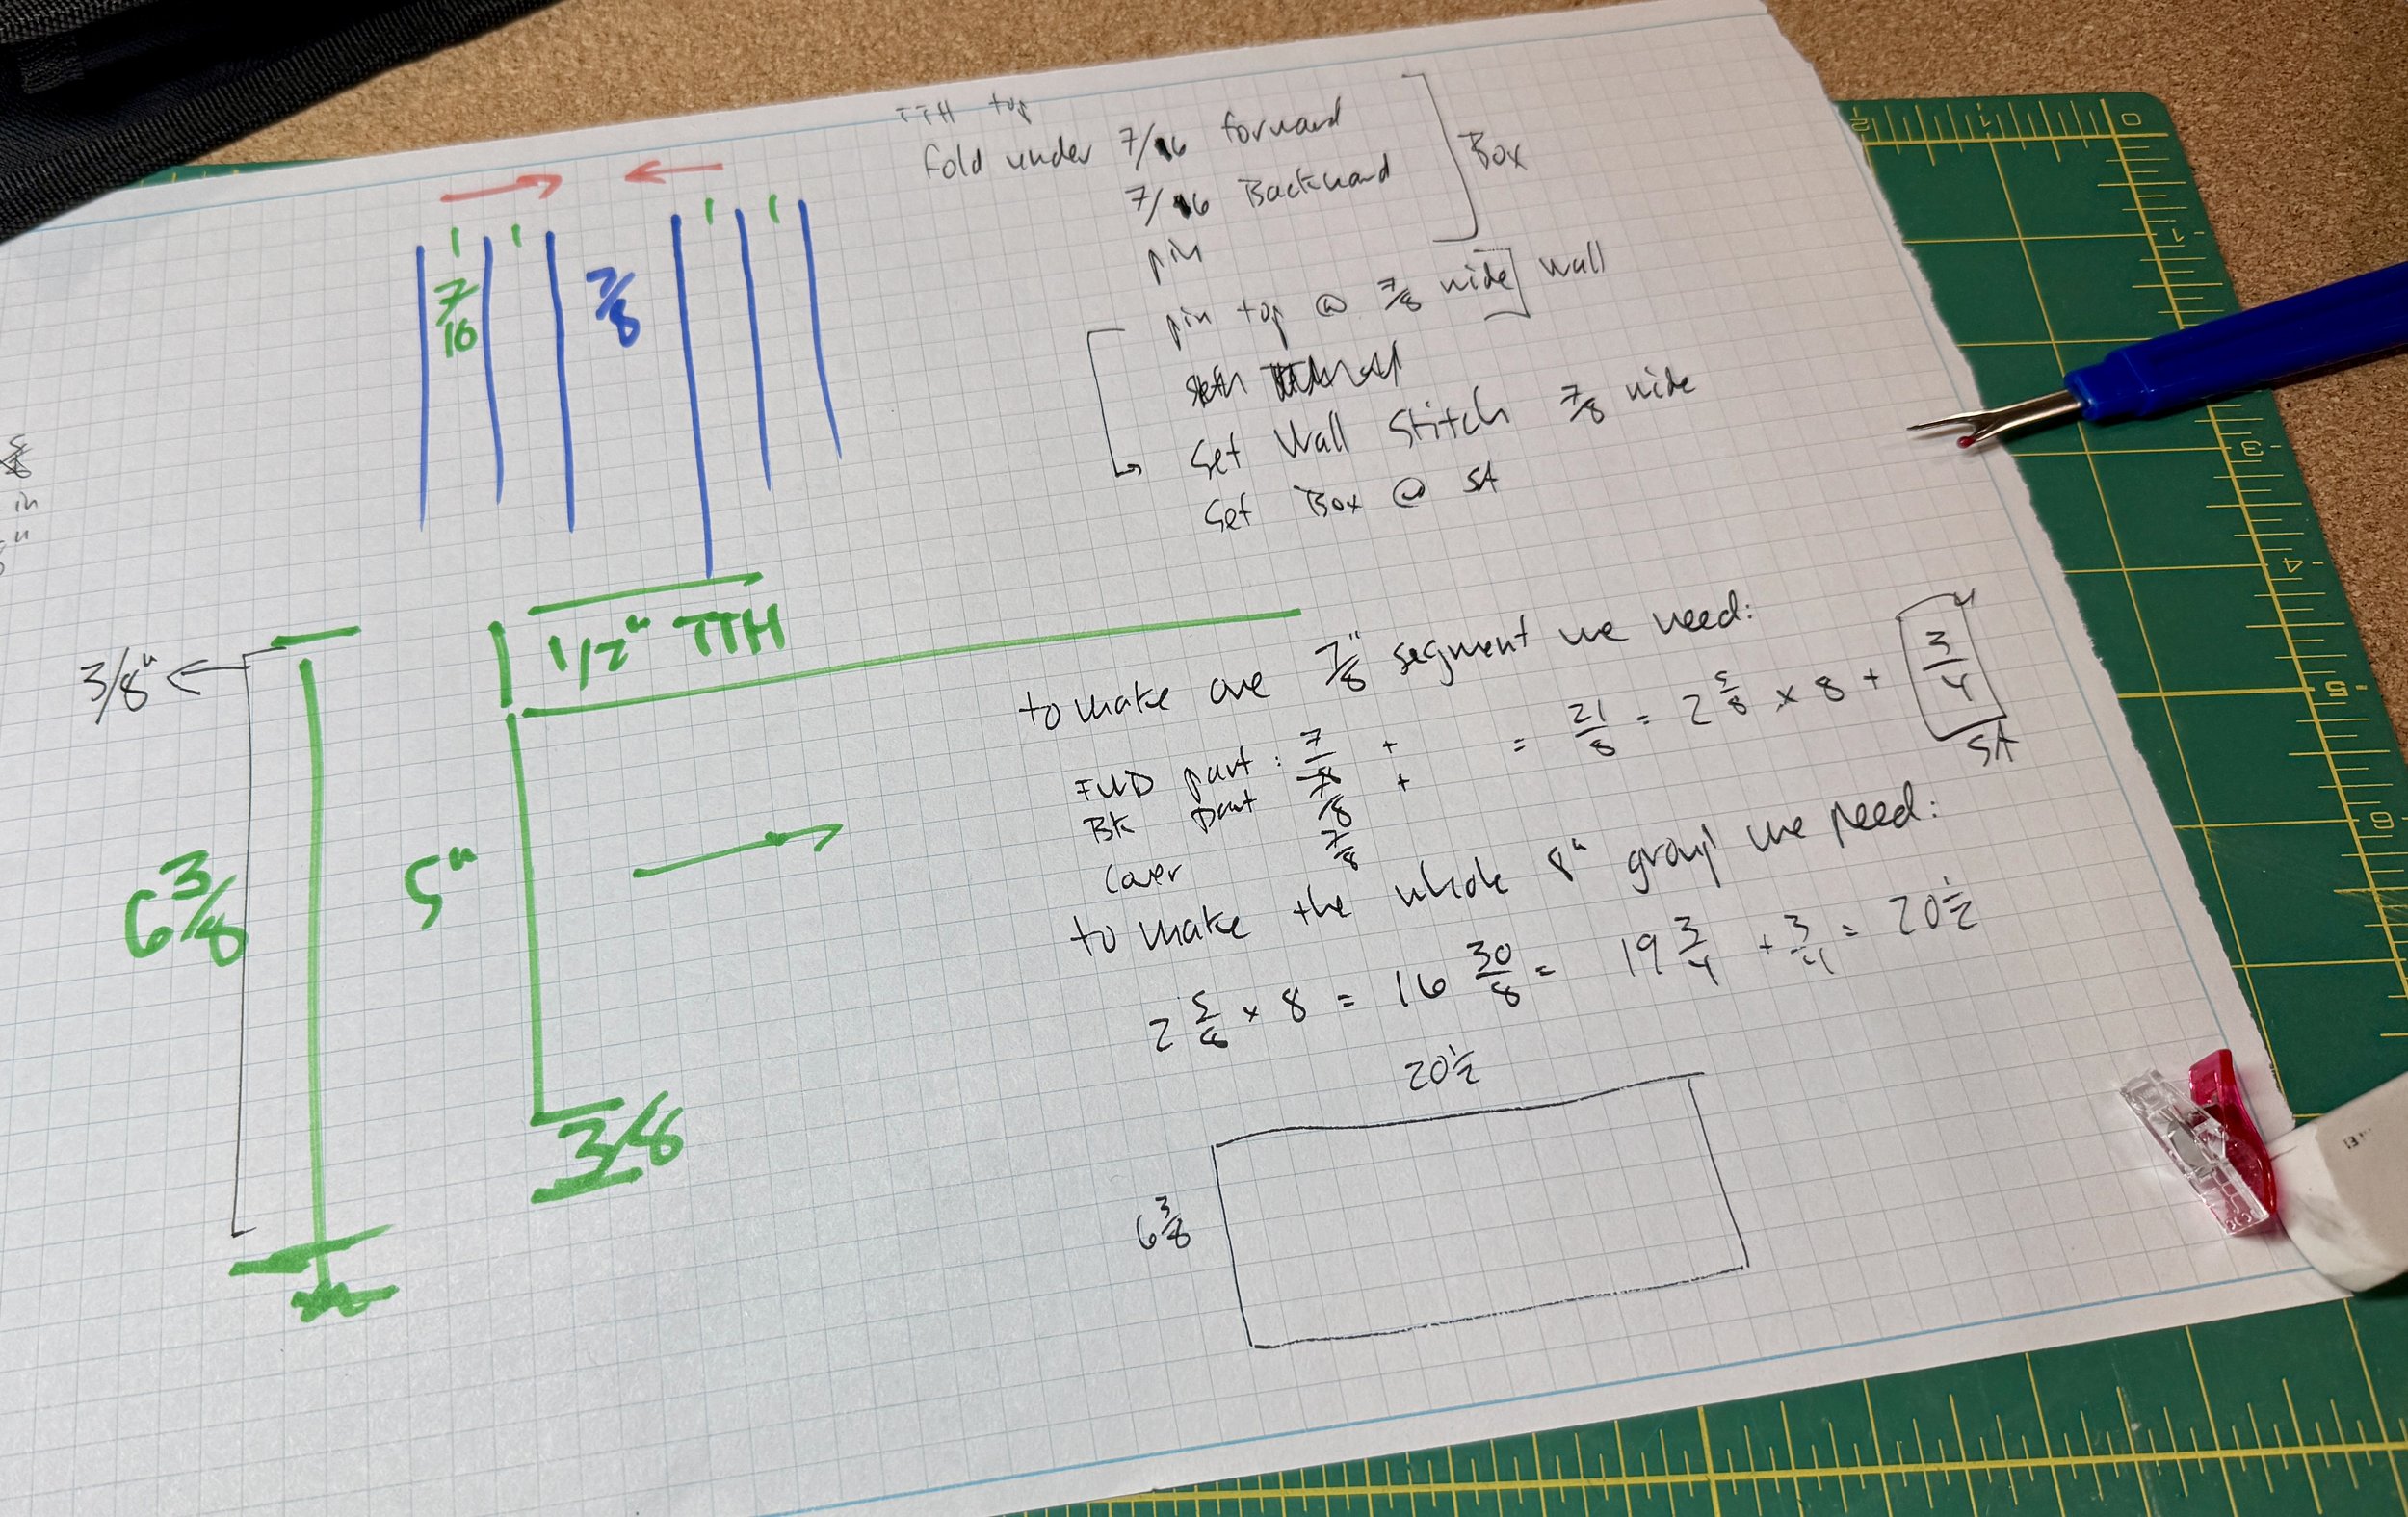 TTH top
Fold under 7/16 forward
7/16 Backward
pin
Box
pin top @ 7/8 wide
Wall
Set Wall Stitch 7/8 wide
Set Box @ SA
7/16
7/8
1/2" TTH
3/8"
6 3/8
5"
3/8
to make one 7/8" segment we need:
FWD part: 7/8 +
Bk part 7/8 +
Cover 7/8
= 21/8 = 2 5/8 x 8 + 3/4
SA
to make the whole 8" group we need:
2 5/8 x 8 = 16 30/8 = 19 3/4 + 3/4 = 20 1/2
20 1/2
6 3/8
in
0
1
2
3
4
5
6